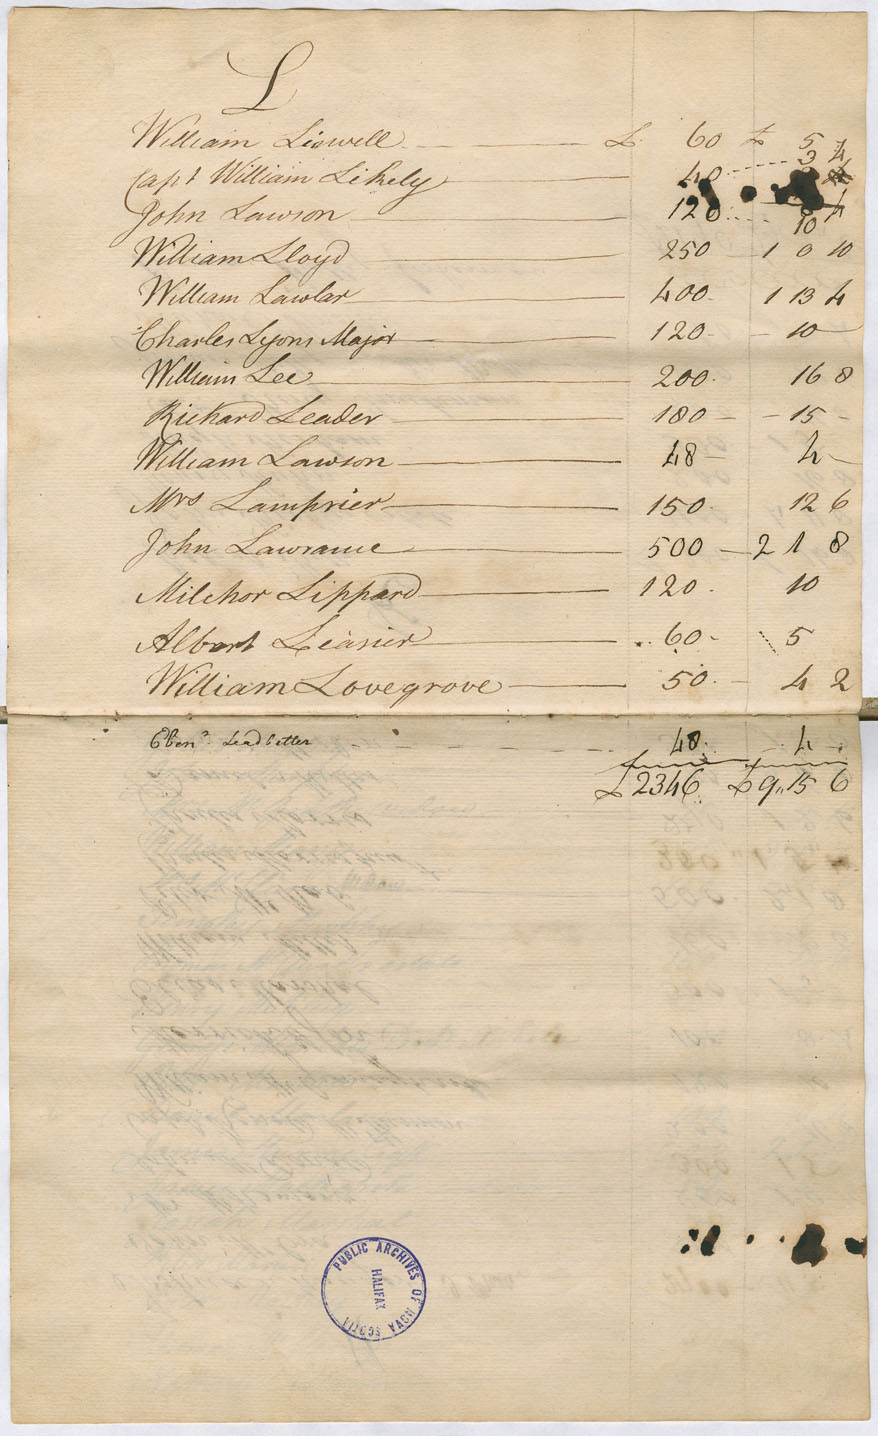 L
William Liswell £ 60 £ 5
Capt William Likely 40 3 4
John Lawson 120 10 4
William Lloyd 250 1 0 10
William Lawlar 400 1 13 4
Charles Lyons Major 120 10
William Lee 200 16 8
Richard Leader 180 15
William Lawson 48 4
Mrs Lamprier 150 12 6
John Lawrance 500 2 1 8
Milchor Lippard 120 10
Albert Leasier 60 5
William Lovegrove 50 4 2
Ebenr Leadbetter 48 4
£2346 £9,, 15 6
PUBLIC ARCHIVES OF NOVA SCOTIA
HALIFAX